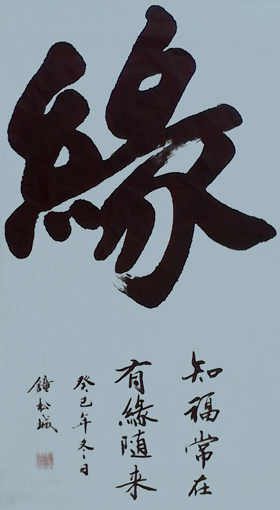 緣
知福常在
有緣随来
癸巳年冬日
鐘松城